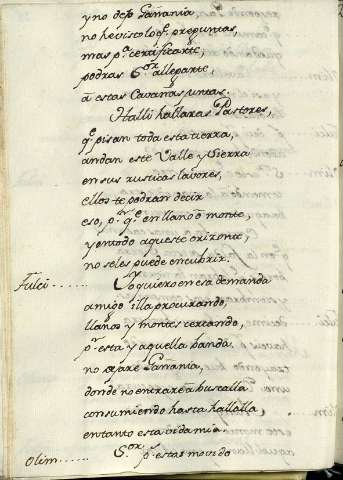 y no dejo Gañania,
no he visto lo q.e preguntas,
mas p.a certificarte,
podras S.or allegarte,
â estas Cavañas juntas.
Halli hallaras Pastores,
q.e pisan toda esta tierra,
andan este Valle y Sierra
en sus rusticas lavores,
ellos te podran decir
eso, p.r q.e en llano ô monte,
y en todo aqueste orizonte,
no seles puede encubrir.
Fulci...... Yo quiero en esa demanda
amigo illa procurando,
llanos y montes cercando,
p.r esta y aquella banda.
no dejare Gañania,
donde no entrare â buscalla
consumiendo hasta hallalla,
en tanto esta vida mia.
Olim...... S.or p.r estar movido